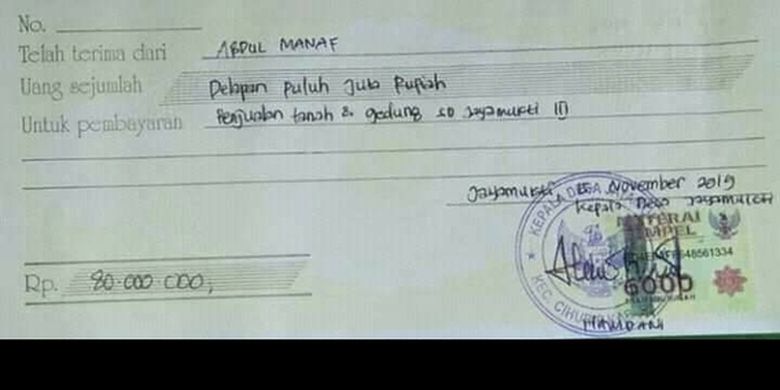 No.
Telah terima dari ABDUL MANAF
Uang sejumlah Delapan puluh Juta Rupiah
Untuk pembayaran Penjualan tanah & gedung SD Jayamukti III
Jayamukti, November 2019
Kepala Desa Jayamukti
KEPALA DESA
METERAI
TEMPEL
6000
KEC. CIHURIP
Rp. 80.000.000,
HAMDANI